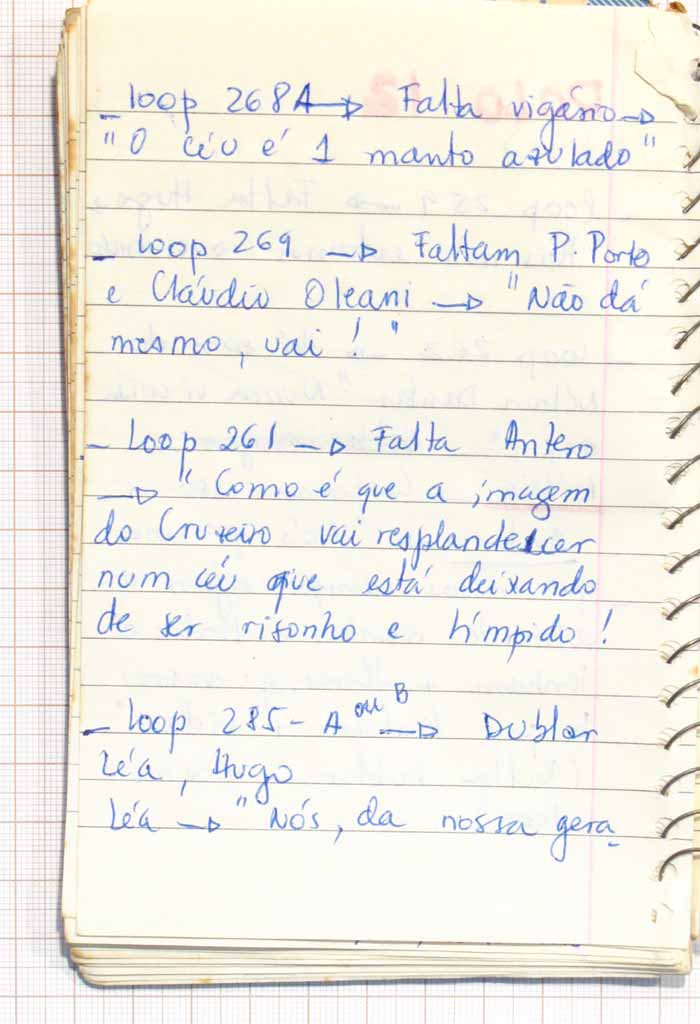 - loop 268A → Falta vigário →
"O céu é 1 manto azulado"
- loop 269 → Faltam P. Porto
e Cláudio Oleani → "Não dá
mesmo, vai!"
- Loop 261 → Falta Antero
→ "Como é que a imagem
do Cruzeiro vai resplandecer
num céu que está deixando
de ser risonho e límpido!
- Loop 285 - A ou B → Dublar
Léa, Hugo
Léa → "Nós, da nossa gera-